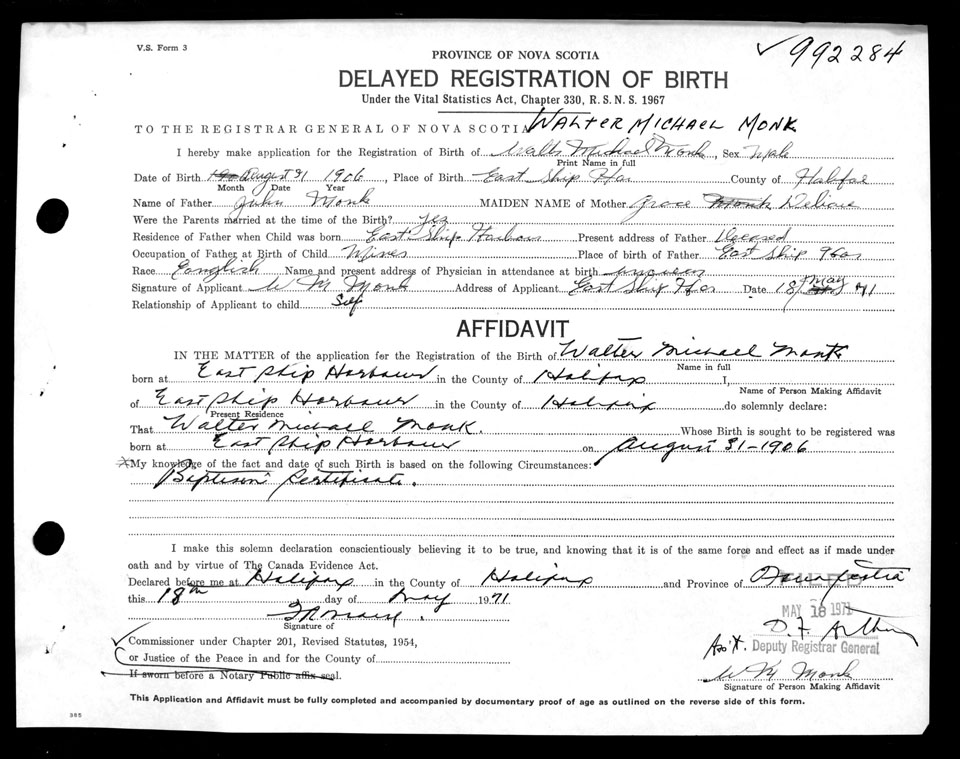 V.S. Form 3
✓992284
PROVINCE OF NOVA SCOTIA
DELAYED REGISTRATION OF BIRTH
Under the Vital Statistics Act, Chapter 330, R.S.N.S. 1967
TO THE REGISTRAR GENERAL OF NOVA SCOTIA WALTER MICHAEL MONK
I hereby make application for the Registration of Birth of Walter Michael Monk, Sex Male
Print Name in full
Date of Birth August 31 1906, Place of Birth East Ship Har County of Halifax
Month Date Year
Name of Father John Monk MAIDEN NAME of Mother Grace Monk
Were the Parents married at the time of the Birth? yes
Residence of Father when Child was born East Ship Harbour Present address of Father
Occupation of Father at Birth of Child Place of birth of Father East Ship
Race Name and present address of Physician in attendance at birth
Signature of Applicant W M Monk Address of Applicant East Ship Har Date 18/May 71
Relationship of Applicant to child Self
AFFIDAVIT
IN THE MATTER of the application for the Registration of the Birth of Walter Michael Monk
Name in full
born at East Ship Harbour in the County of Halifax I,
Name of Person Making Affidavit
of East Ship Harbour in the County of Halifax do solemnly declare:
Present Residence
That Walter Michael Monk. Whose Birth is sought to be registered was
born at East Ship Harbour on August 31-1906
My knowledge of the fact and date of such Birth is based on the following Circumstances:
Baptism Certificate.
I make this solemn declaration conscientiously believing it to be true, and knowing that it is of the same force and effect as if made under
oath and by virtue of The Canada Evidence Act.
Declared before me at Halifax in the County of Halifax and Province of Nova Scotia
this 18th day of May 1971
MAY 18 1971
Signature of
D. F. Arthur
Commissioner under Chapter 201, Revised Statutes, 1954,
Ass't. Deputy Registrar General
or Justice of the Peace in and for the County of
If sworn before a Notary Public affix seal.
W M Monk
Signature of Person Making Affidavit
This Application and Affidavit must be fully completed and accompanied by documentary proof of age as outlined on the reverse side of this form.